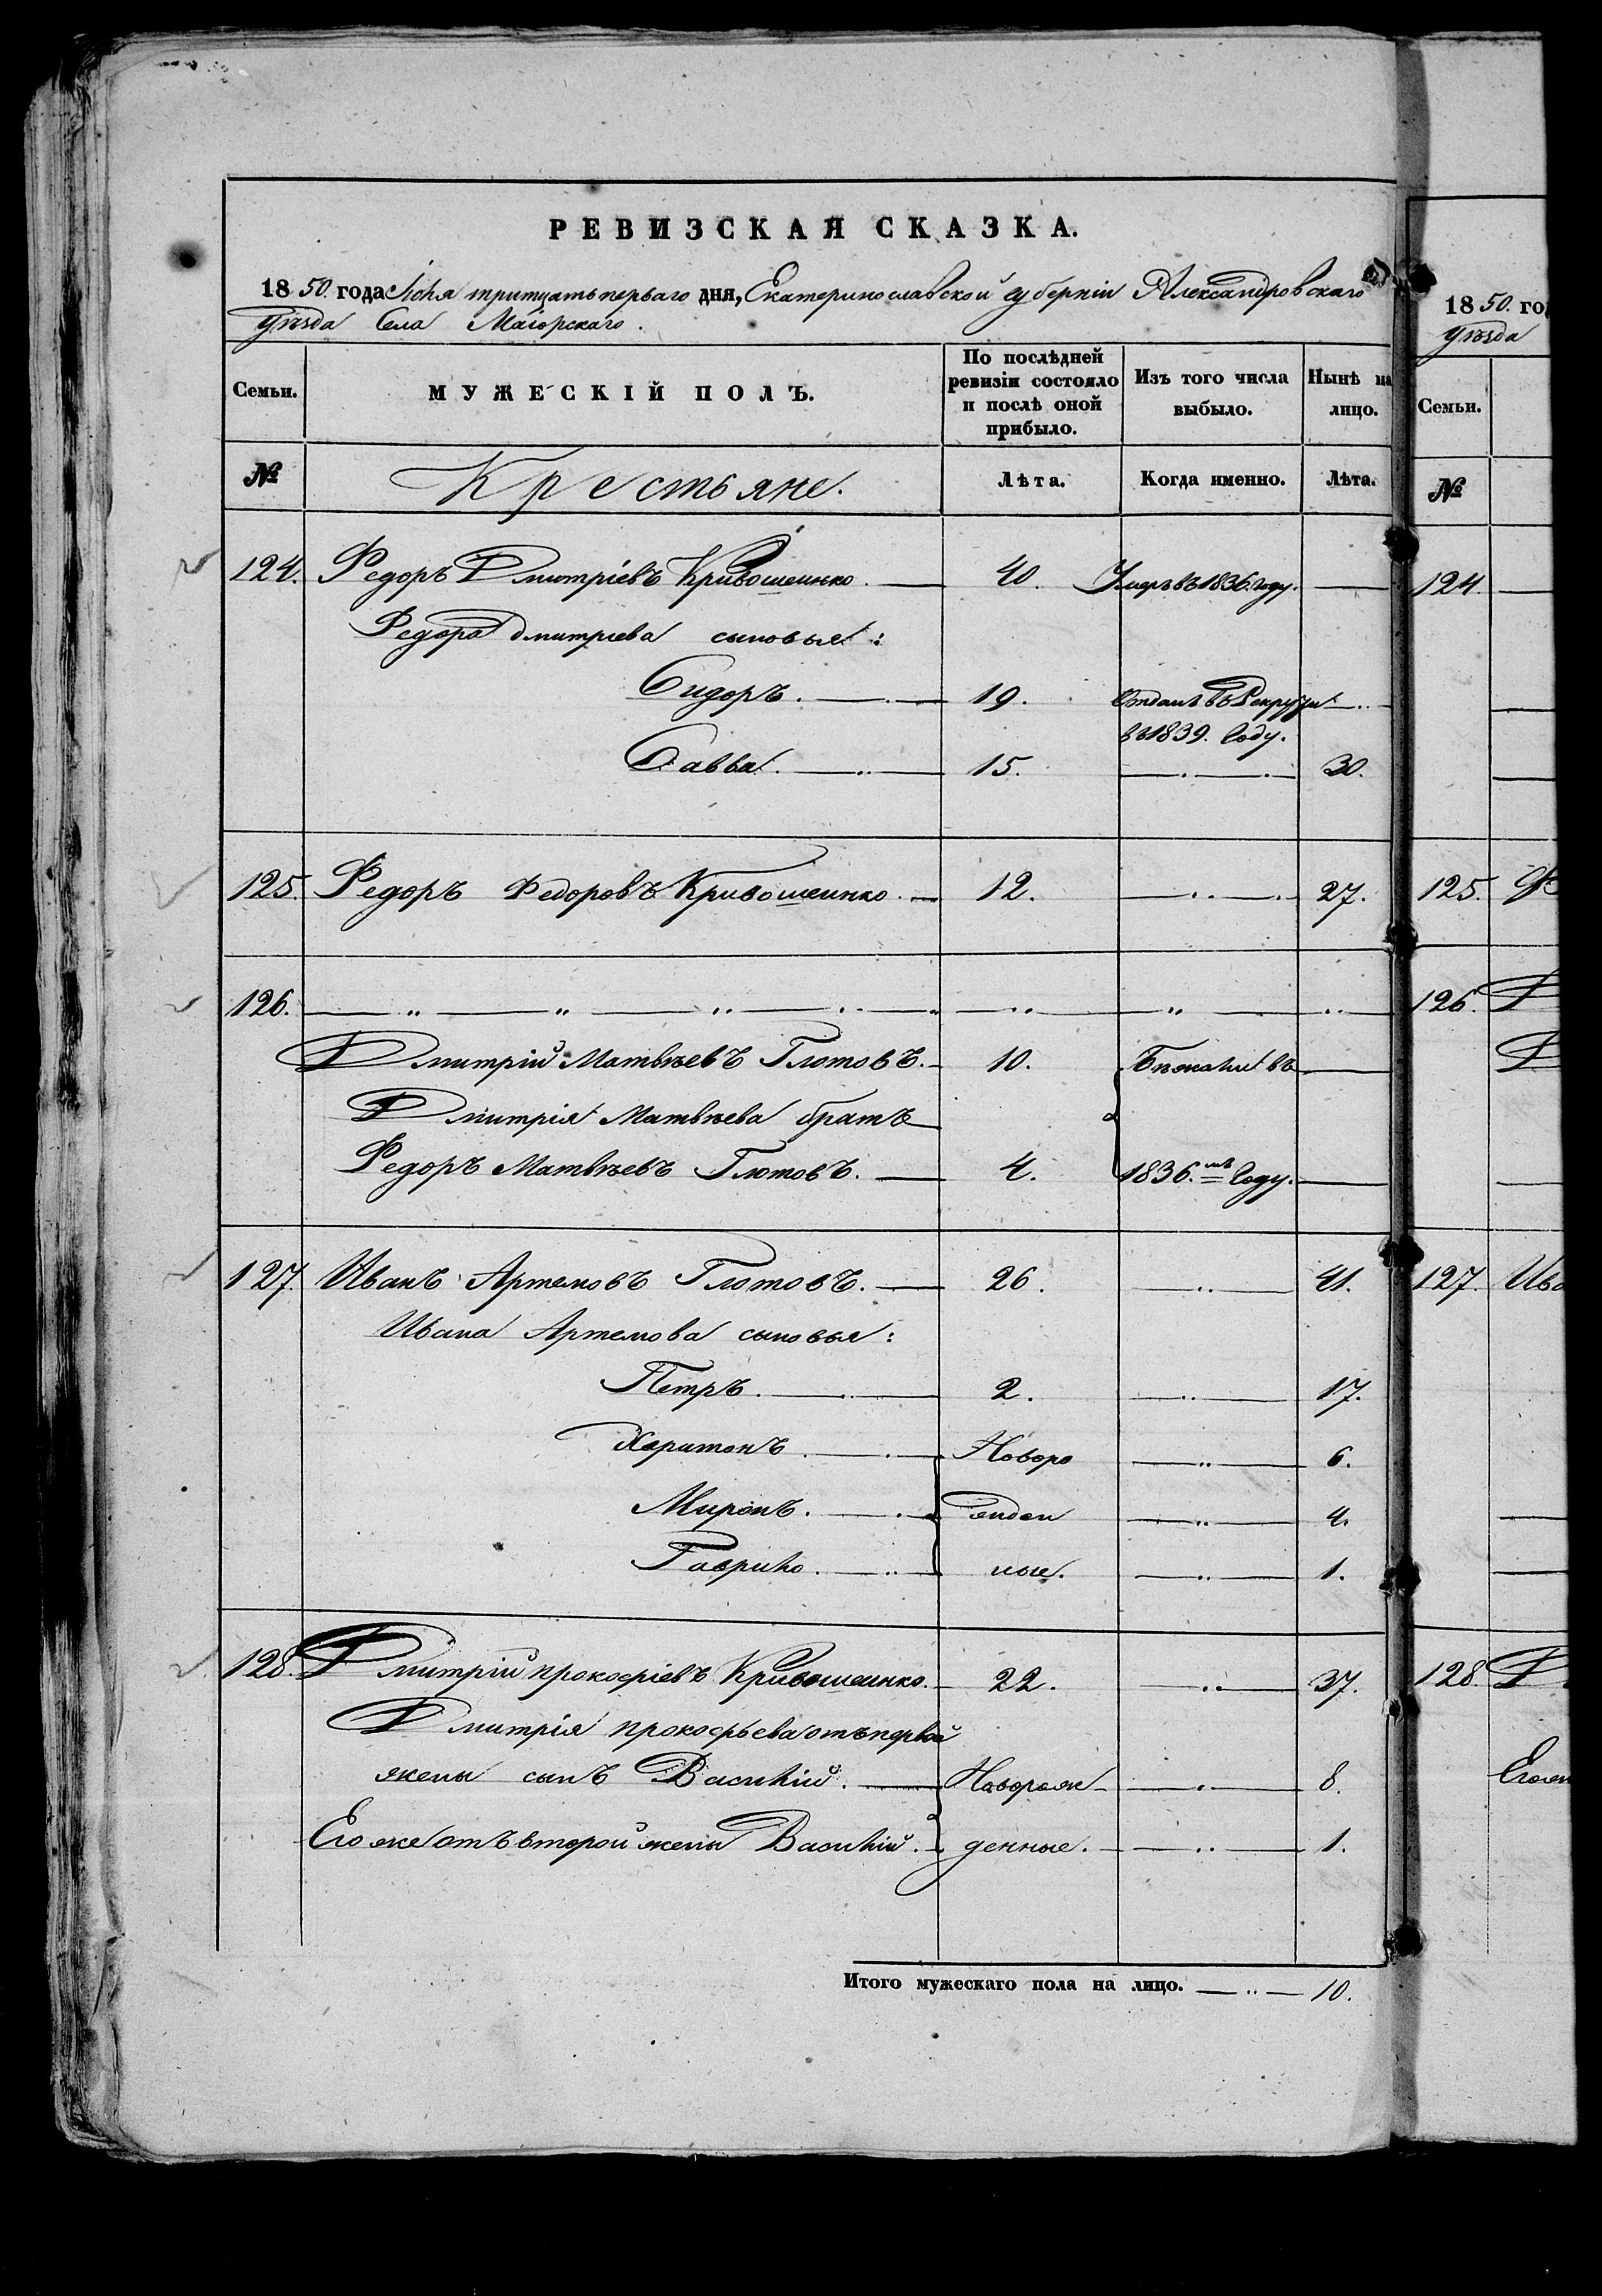 РЕВИЗСКАЯ СКАЗКА.
1850. года Іюля тритцать перваго дня, Екатеринославской губерніи Александровскаго
уѣзда Села Маіорскаго.
Семьи. МУЖЕСКІЙ ПОЛЪ. По послѣдней ревизіи состояло и послѣ оной прибыло. Изъ того числа выбыло. Нынѣ на лицо.
№ Крестьяне. Лѣта. Когда именно. Лѣта.
124. Федоръ Дмитріевъ Кривошеинко. 40. Умеръ въ 1836. году.
Федора Дмитріева сыновья:
Сидоръ. 19. Отданъ въ Рекруты
въ 1839. Году.
Савва. 15. 30.
125. Федоръ Федоровъ Кривошеинко. 12. 27.
126.
Дмитрій Матвѣевъ Глотовъ. 10. Бѣжали въ
Дмитрія Матвѣева братъ
Федоръ Матвѣевъ Глотовъ. 4. 1836.мъ Году.
127. Иванъ Артемовъ Глотовъ. 26. 41.
Ивана Артемова сыновья:
Петръ. 2. 17.
Харитонъ. Новоро 6.
Миронъ. жден 4.
Гаврило. ные. 1.
128. Дмитрій прокофіевъ Кривошеинко. 22. 37.
Дмитрія прокофьева отъ первой
жены сынъ Василій. Новорож- 8.
Его же отъ второй жены Василій. денные. 1.
Итого мужескаго пола на лицо. 10.
1850. го
уѣзда
Семьи.
№
124.
125.
126.
127. Ива
128.